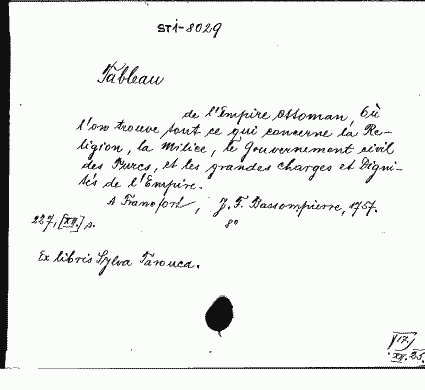 STi-8029
Tableau
de l'Empire Ottoman, Où
l'on trouve tout ce qui concerne la Re-
ligion, la Milice, le Gouvernement civil
des Turcs, et les grandes Charges et Digni-
tés de l'Empire.
A Francfort, J. F. Bassompierre, 1757.
227, [XII.] s. 8°
Ex libris Sylva Tarouca.
17.
XII. 25.